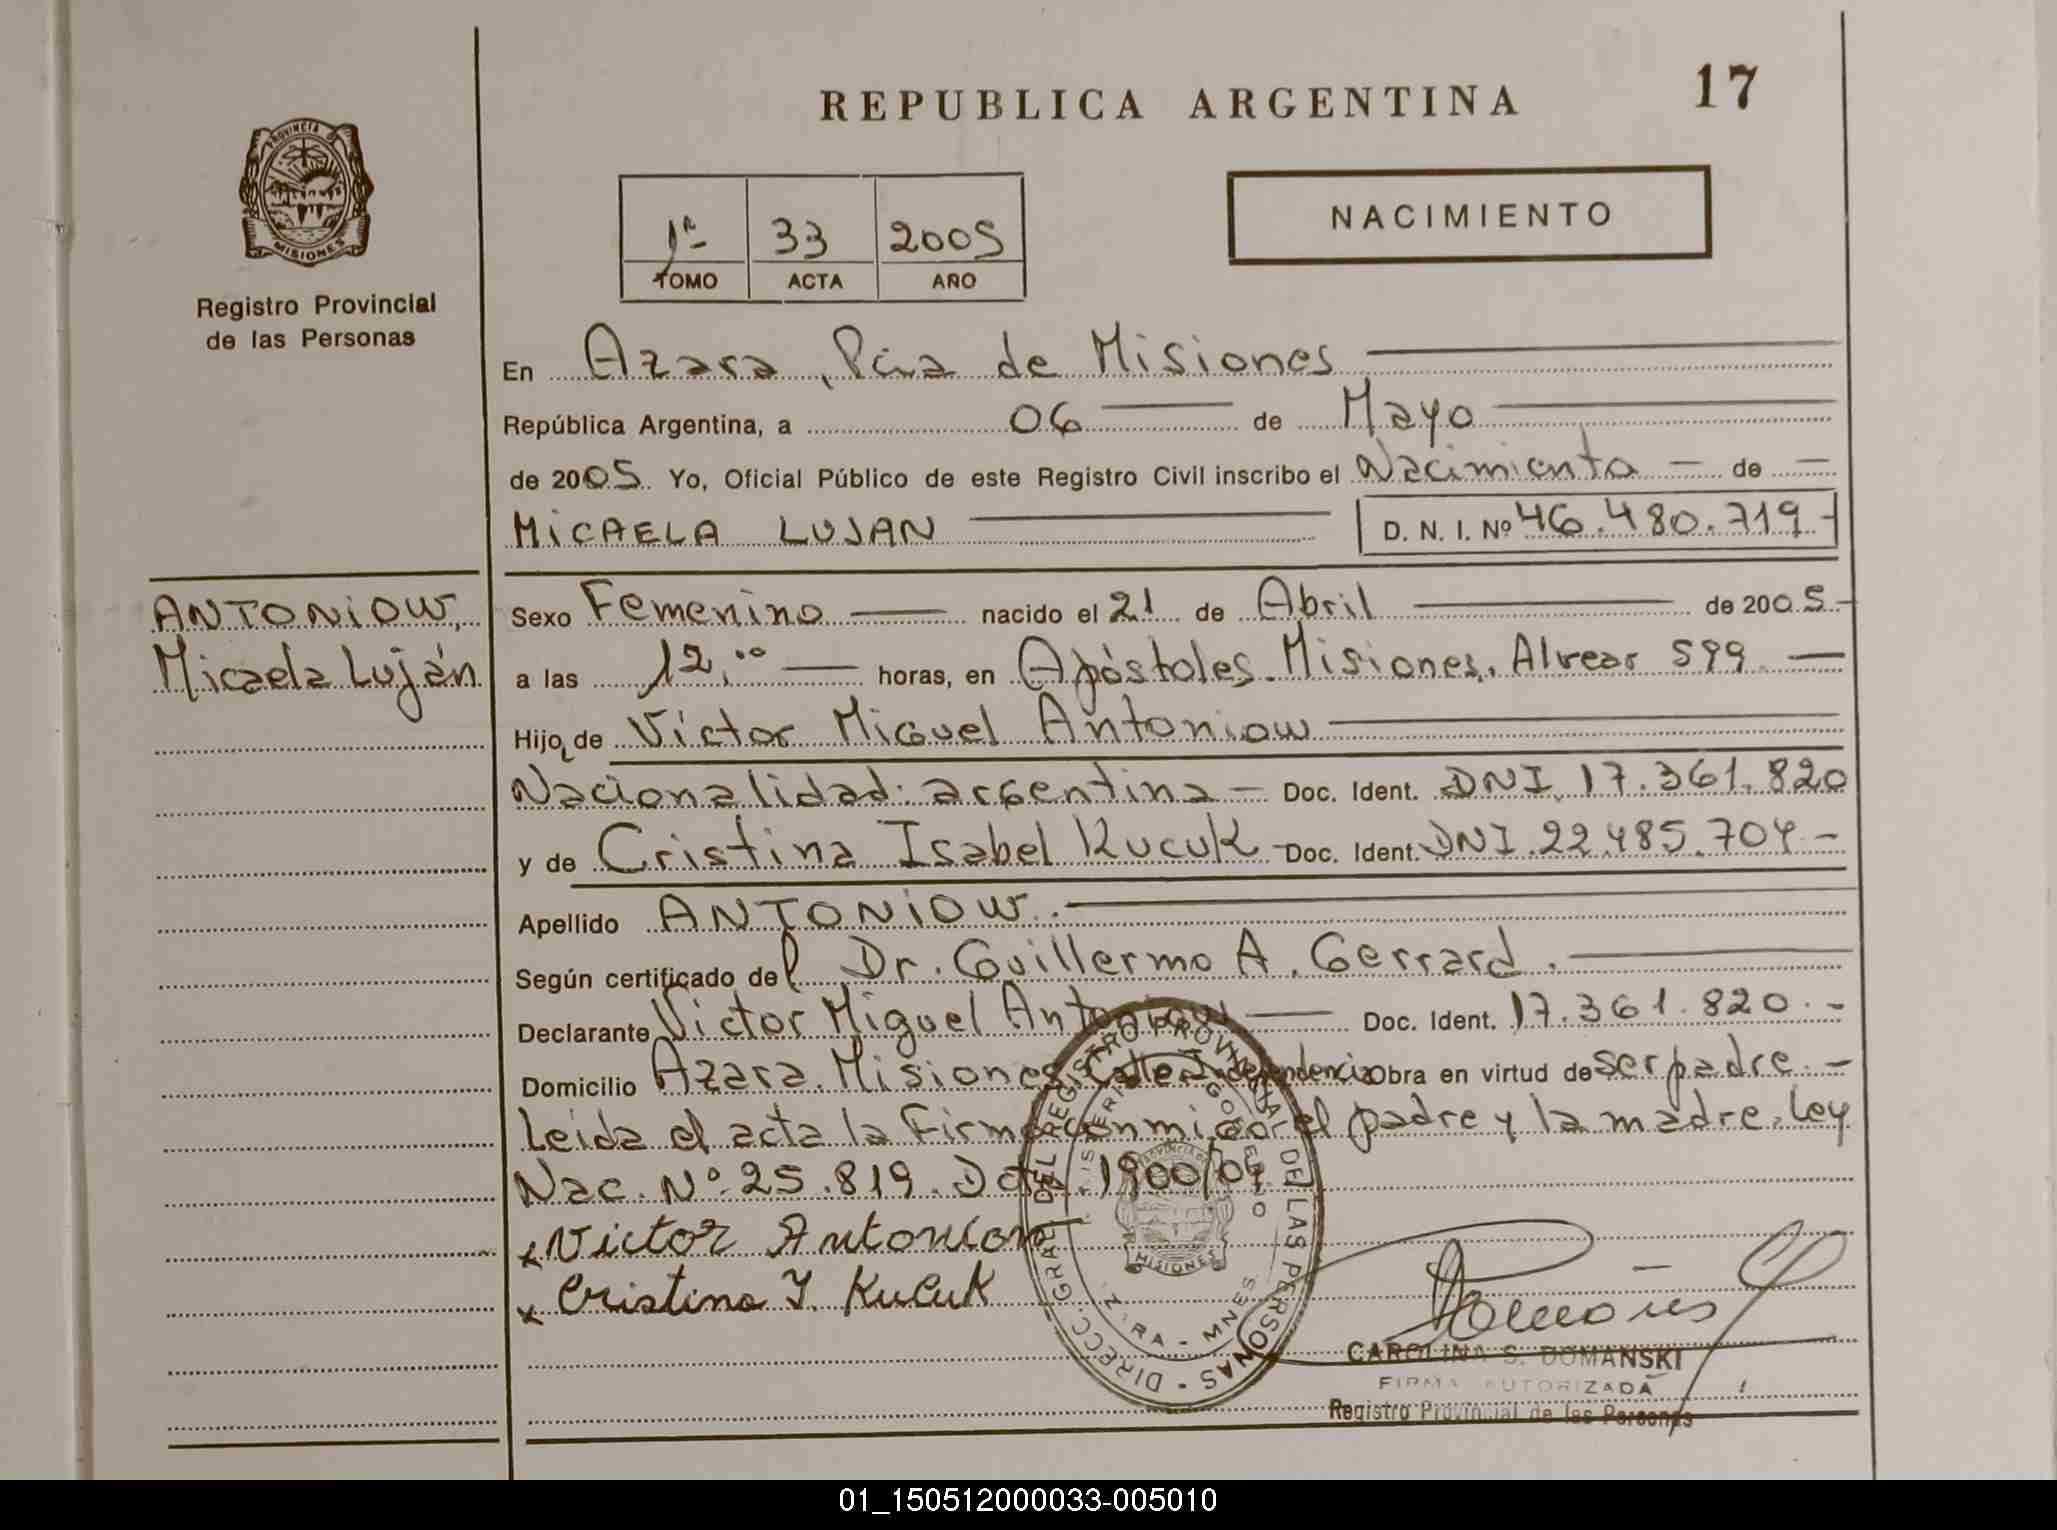 REPUBLICA ARGENTINA
17
PROVINCIA DE
MISIONES
Registro Provincial
de las Personas
1º 33 2005
TOMO ACTA AÑO
NACIMIENTO
En Azara, Pcia de Misiones
República Argentina, a 06 de Mayo
de 2005. Yo, Oficial Público de este Registro Civil inscribo el Nacimiento de
MICAELA LUJAN D. N. I. Nº 46.480.719
ANTONIOW,
Micaela Luján
Sexo Femenino nacido el 21 de Abril de 2005
a las 12,00 horas, en Apóstoles. Misiones. Alvear 599
Hijo de Víctor Miguel Antoniow
Nacionalidad: argentina Doc. Ident. DNI. 17.361.820
y de Cristina Isabel Kucuk Doc. Ident. DNI. 22.485.704
Apellido ANTONIOW.
Según certificado del Dr. Guillermo A. Gerrard.
Declarante Victor Miguel Antoniow Doc. Ident. 17.361.820.
Domicilio Azara. Misiones. Calle Independencia Obra en virtud de ser padre.
Leída el acta la Firman conmigo el padre y la madre. Ley
Nac. Nº 25.819. 1900/04
x Victor Antoniow
x Cristina I. Kucuk
DIRECC. GRAL. DEL REGISTRO PROVINCIAL DE LAS PERSONAS
MISIONES
CAROLINA S. DOMANSKI
FIRMA AUTORIZADA
Registro Provincial de las Personas
01_150512000033-005010